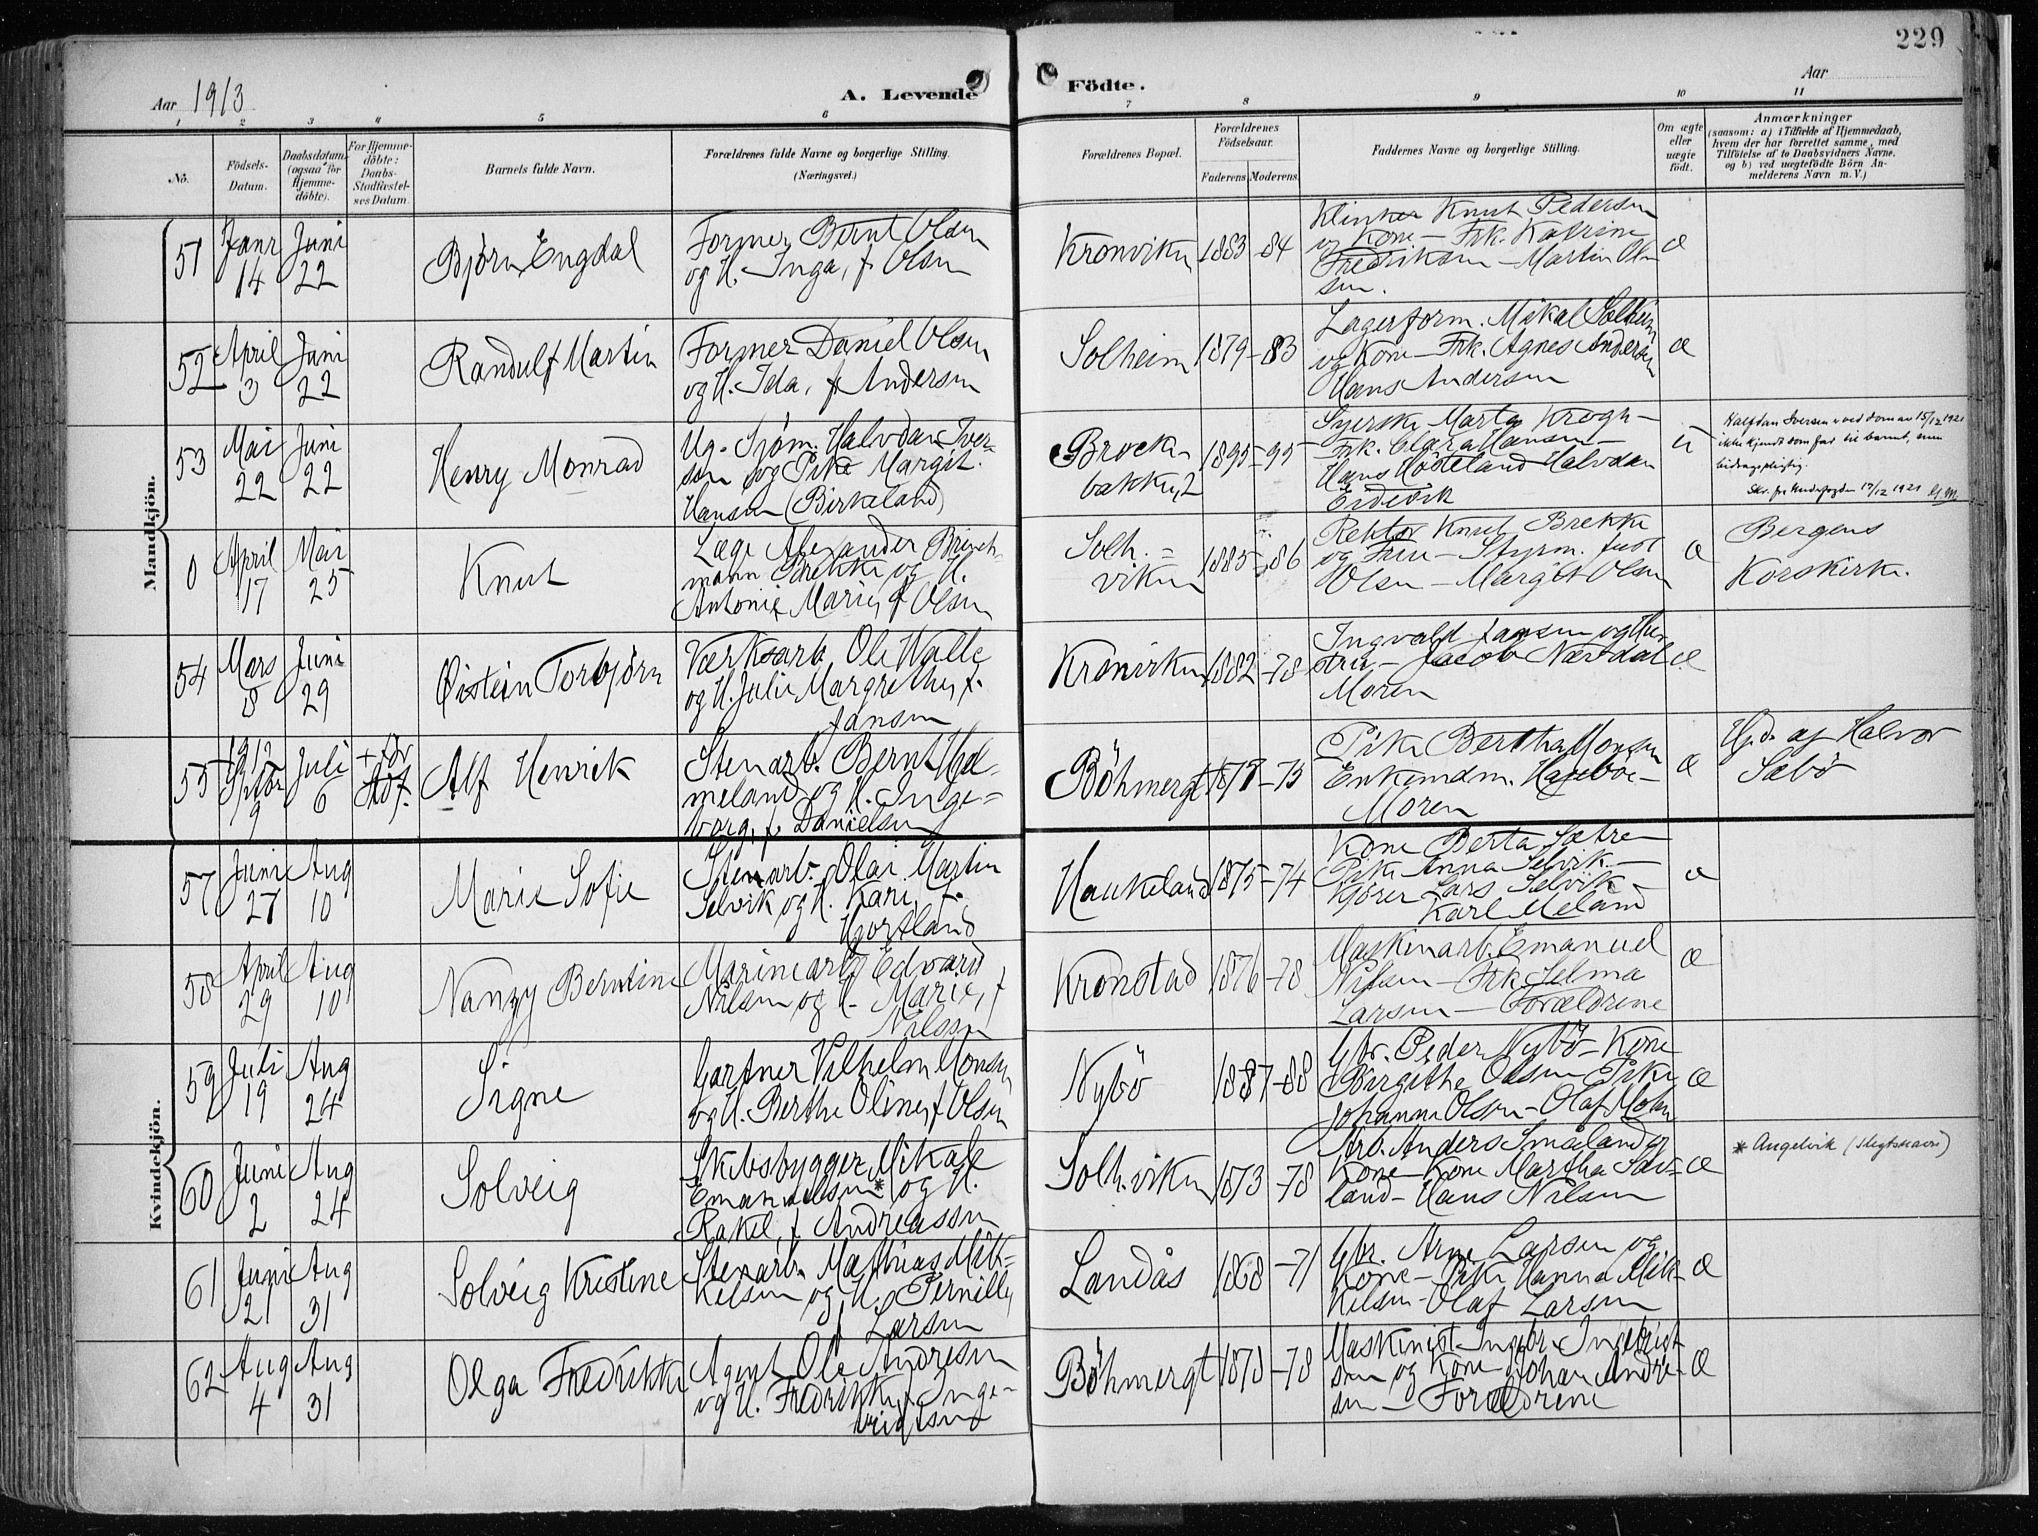 229
Aar 1913
A. Levende
Födte.
Aar
1 2 3 4 5 6 7 8 9 10 11
No.
Födsels-
Datum.
Daabsdatum
(ogsaa for
Hjemme-
döbte).
For Hjemme-
döbte:
Daabs-
Stadfæstel-
ses Datum.
Barnets fulde Navn.
Forældrenes fulde Navne og borgerlige Stilling.
(Næringsvei.)
Forældrenes Bopæl.
Forældrenes
Födselsaar.
Faderens. Moderens.
Faddernes Navne og borgerlige Stilling.
Om ægte
eller
uægte
födt.
Anmærkninger
(saasom: a) i Tilfælde af Hjemmedaab,
hvem der har forrettet samme, med
Tilföielse af to Daabsvidners Navne.
og b) ved uægtefödte Börn An-
melderens Navn m. V.)
Mandkjön.
51
Janr
14
Juni
22
Bjørn Engdal
Former Bernt Olsen
og H. Inga, f. Olsen
Kronviken
1883 -84
Klinker Knut Pedersen
og Kone - Frk. Katrine
Fredriksen - Martin Ol-
sen.
æ
52
April
3
Juni
22
Randulf Martin
Former Daniel Olsen
og H. Ida, f. Andersen
Solheim
1879 -83
Lagerform. Mikal Solheim
og Kone - Frk. Agnes Andersen
Hans Andersen
æ
53
Mai
22
Juni
22
Henry Monrad
Ug. Sjøm. Halvdan Iver-
sen og Pike Margit
Hansen (Birkeland)
1895 -95
Syerske Marta Krogh -
Frk. Clara Hansen -
Hans Høiland Halvdan
Eidevik
u
Halfdan Iversen ved dom av 15/12 1921
ikke kjendt som far til barnet, men
bidragspligtig.
17/12 1921
0
April
17
Mai
25
Knut
Læge Alexander Brinch-
mann Brekke og H.
Antonie Marie, f. Olsen
Solh.-
viken
1885 -86
Rektor Knut Brekke
og Frue - Styrm. Just
Olsen - Margit Olsen
æ
Bergens
Korskirke.
54
Mars
8
Juni
29
Øistein Torbjørn
Værksarb. Ole Walle
og H. Julie Margrethe, f.
Jansen
Kronviken
1882 -78
Ingvald Jansen og Hu-
stru - Jacob Nævdal
Moren
æ
55
1912
Septbr
9
Juli
6
+ før
stdf.
Alf Henrik
Stenarb. Bernt Hel-
meland og H. Inge-
borg, f. Danielsen
Böhmergt
1877 -75
Pike Bertha Monsen
Enkemdm. Haubøe -
Moren
æ
Hjd. af Halvor
Sæbö
Kvindekjön.
57
Juni
27
Aug
10
Marie Sofie
Stenarb. Olai Martin
Selvik og H. Kari, f.
Hjortland
Haukeland
1875 -74
Kone Berta Sætre
Pike Anna Selvik -
Kjører Lars Selvik -
Karl Meland
æ
58
April
29
Aug
10
Nanzy Berntine
Marinearb. Edvard
Nilsen og H. Marie, f.
Nilssen
Kronstad
1876 -78
Maskinarb. Emanuel
Nilsen - Frk. Selma
Larsen - Forældrene
æ
59
Juli
19
Aug
24
Signe
Gartner Vilhelm Monsen
og H. Berthe Oline, f. Olsen
Nybö
1887 -88
Gbr. Peder Nybö - Kone
Birgithe Olsen Pike
Johanne Olsen - Olaf Molen
æ
60
Juni
2
Aug
24
Solveig
Skibsbygger Mikale
Emanuelsen* og H.
Rakel, f. Andreassen
Solh.viken
1873 -78
Arb. Anders Småland og
Kone - Kone Martha Sæv-
land - Hans Nilsen
æ
* Angelvik (slegtsnavn)
61
Juni
21
Aug
31
Solveig Kristine
Stenarb. Mathias Mik-
kelsen og H. Pernille,
f. Larsen
Landås
1868 -71
Gbr. Arne Larsen og
Kone - Pike Hanna Mik-
kelsen - Olaf Larsen
æ
62
Aug
4
Aug
31
Olga Fredrikke
Agent Ole Andresen
og H. Fredrikke, f. Inge-
brigtsen
Böhmergt
1878 -78
Maskinist Ingebr. Ingebrigt-
sen og Kone - Johan Andre-
sen - Forældrene
æ